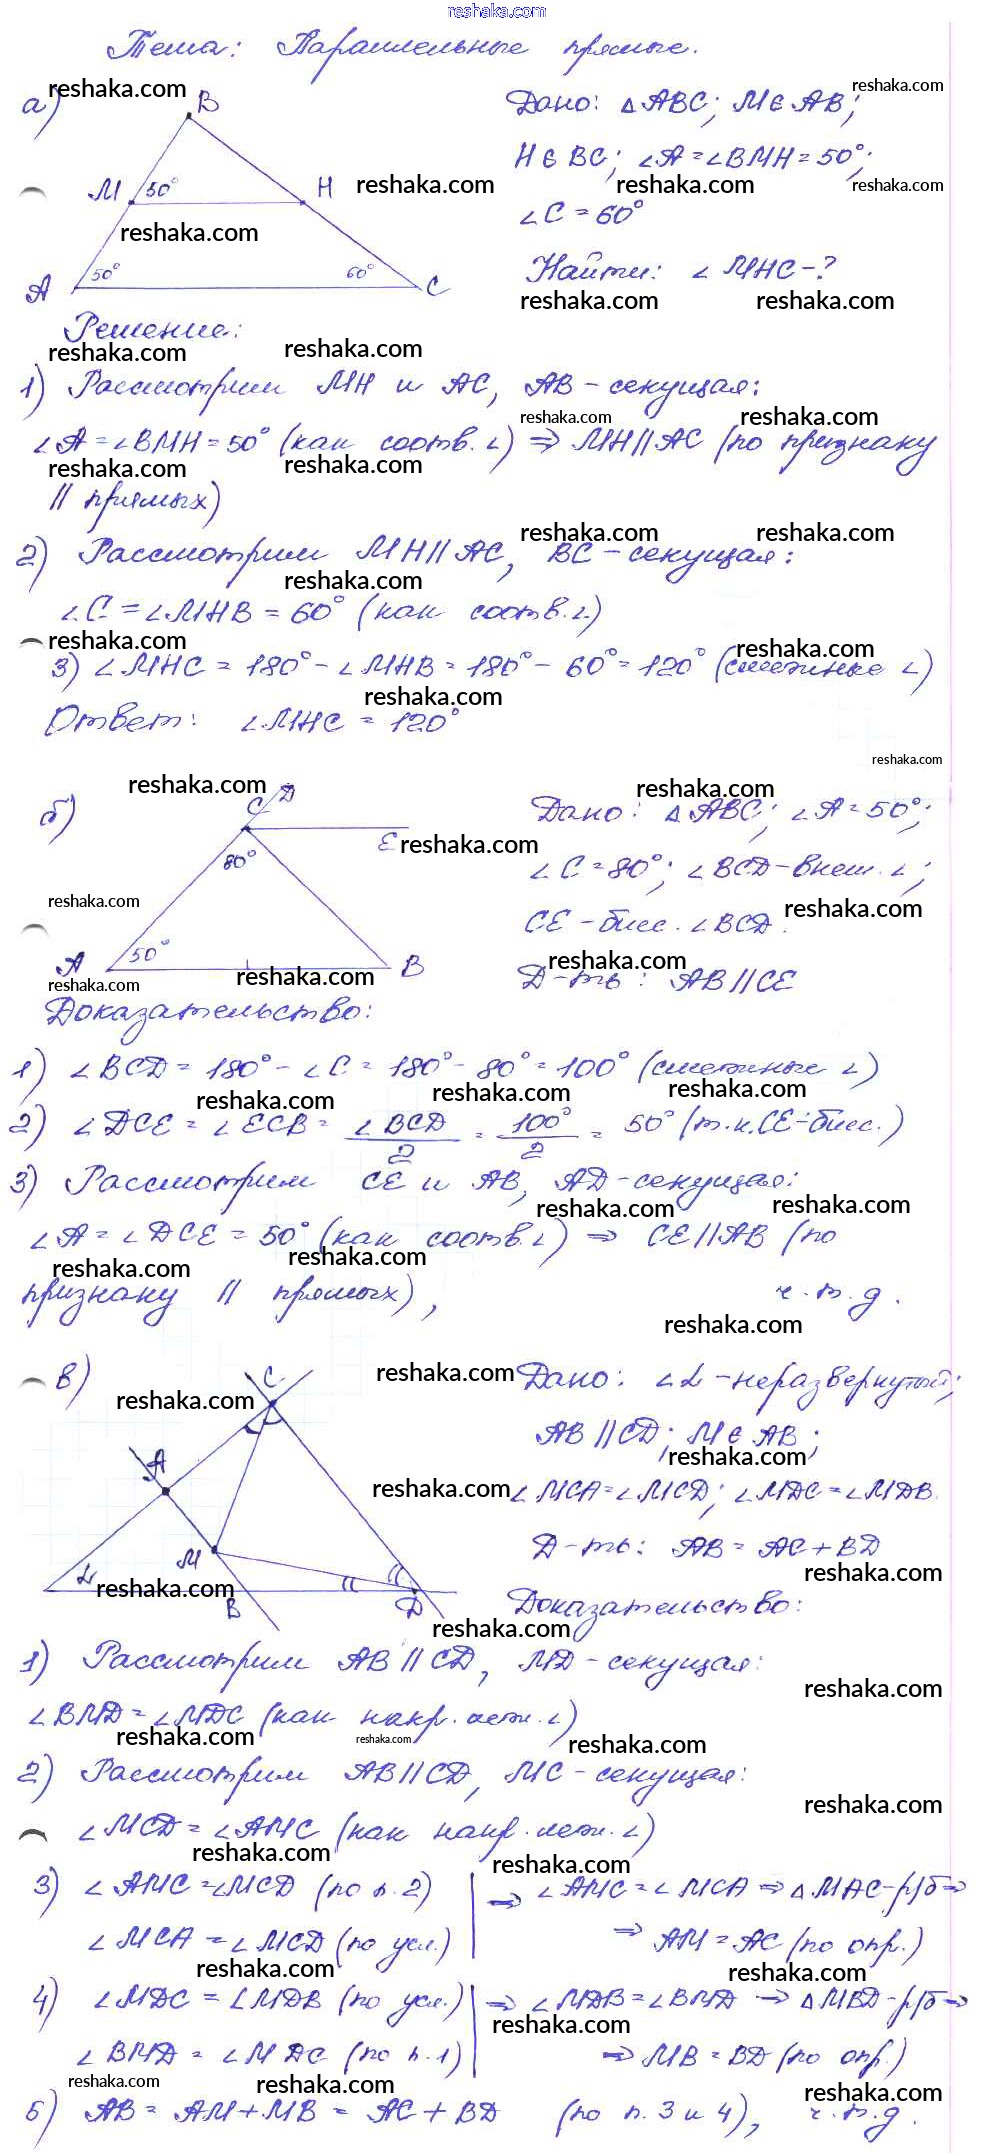 reshaka.com
Тема: Параллельные прямые.
а)
B
M 50° H
A 50° 60° C
Дано: △ABC; M∈AB;
H∈BC; ∠A=∠BMH=50°;
∠C=60°
Найти: ∠MHC-?
Решение:
1) Рассмотрим MH и AC, AB-секущая:
∠A=∠BMH=50° (как соотв.∠) ⇒ MH||AC (по признаку
|| прямых)
2) Рассмотрим MH||AC, BC-секущая:
∠C=∠MHB=60° (как соотв.∠)
3) ∠MHC=180°-∠MHB=180°-60°=120° (смежные ∠)
Ответ: ∠MHC=120°
б)
C D
80° E
A 50° B
Дано: △ABC; ∠A=50°;
∠C=80°; ∠BCD-внеш.∠;
CE-бисс.∠BCD.
Д-ть: AB||CE
Доказательство:
1) ∠BCD=180°-∠C=180°-80°=100° (смежные ∠)
2) ∠DCE=∠ECB=∠BCD/2=100°/2=50° (т.к.CE-бисс.)
3) Рассмотрим CE и AB, AD-секущая:
∠A=∠DCE=50° (как соотв.∠) ⇒ CE||AB (по
признаку || прямых), ч.т.д.
в)
C
A
M
∠ B D
Дано: ∠∠-неразвернутый;
AB||CD; M∈AB;
∠MCA=∠MCD; ∠MDC=∠MDB.
Д-ть: AB=AC+BD
Доказательство:
1) Рассмотрим AB||CD, MD-секущая:
∠BMD=∠MDC (как накр.леж.∠)
2) Рассмотрим AB||CD, MC-секущая:
∠MCD=∠AMC (как накр.леж.∠)
3) ∠AMC=∠MCD (по п.2) | ⇒ ∠AMC=∠MCA ⇒ △MAC-р/б ⇒
∠MCA=∠MCD (по усл.) | ⇒ AM=AC (по опр.)
4) ∠MDC=∠MDB (по усл.) | ⇒ ∠MDB=∠BMD ⇒ △MBD-р/б ⇒
∠BMD=∠MDC (по п.1) | ⇒ MB=BD (по опр.)
5) AB=AM+MB=AC+BD (по п.3 и 4), ч.т.д.